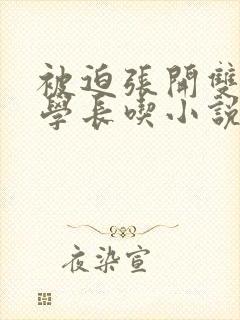 被迫張開雙
學長喫小說
夜染宣